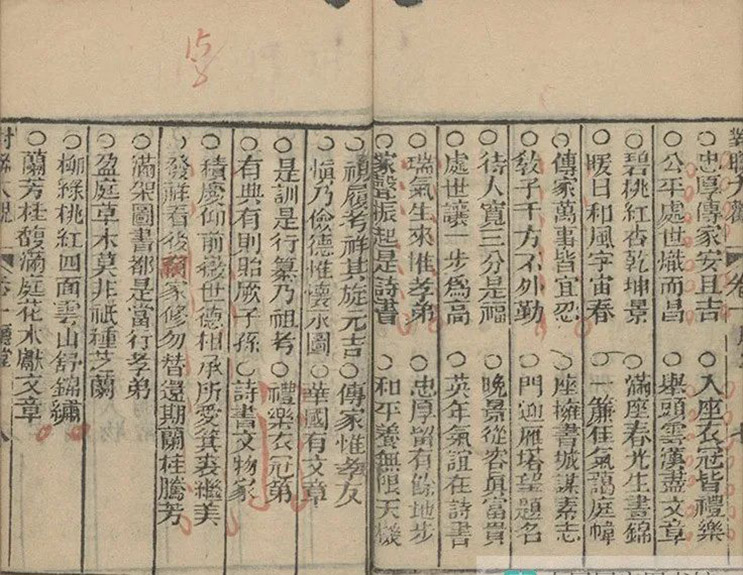 對聯大觀 卷一
○忠厚傳家安且吉 ○入座衣冠皆禮樂
○公平處世熾而昌 ○舉頭雲漢盡文章
○碧桃紅杏乾坤景 ○滿座春光生晝錦
○暖日和風宇宙春 ○一簾佳氣藹庭幃
○傳家萬事皆宜忍 ○座擁書城謀素志
○敎子千方不外勤 ○門迎雁塔望題名
○待人寬三分是福 ○晚景從容眞富貴
○處世讓一步爲高 ○英年氣誼在詩書
○瑞氣生來惟孝弟 ○忠厚留有餘地步
○家聲振起是詩書 ○和平養無限天機
○視履考祥其旋元吉 ○傳家惟孝友
○愼乃儉德惟懷永圖 ○華國有文章
○是訓是行纂乃祖考 ○禮樂衣冠第
○有典有則貽厥子孫 ○詩書文物家
○積慶仰前徽世德相承所愛箕裘繼美
○發祥看後嗣家修勿替還期蘭桂騰芳
○滿架圖書都是當行孝弟
○盈庭草木莫非祇種芝蘭
○柳綠桃紅四面雲山舒錦繡
○蘭芳桂馥滿庭花木獻文章
對聯大觀 卷一 廳堂 八